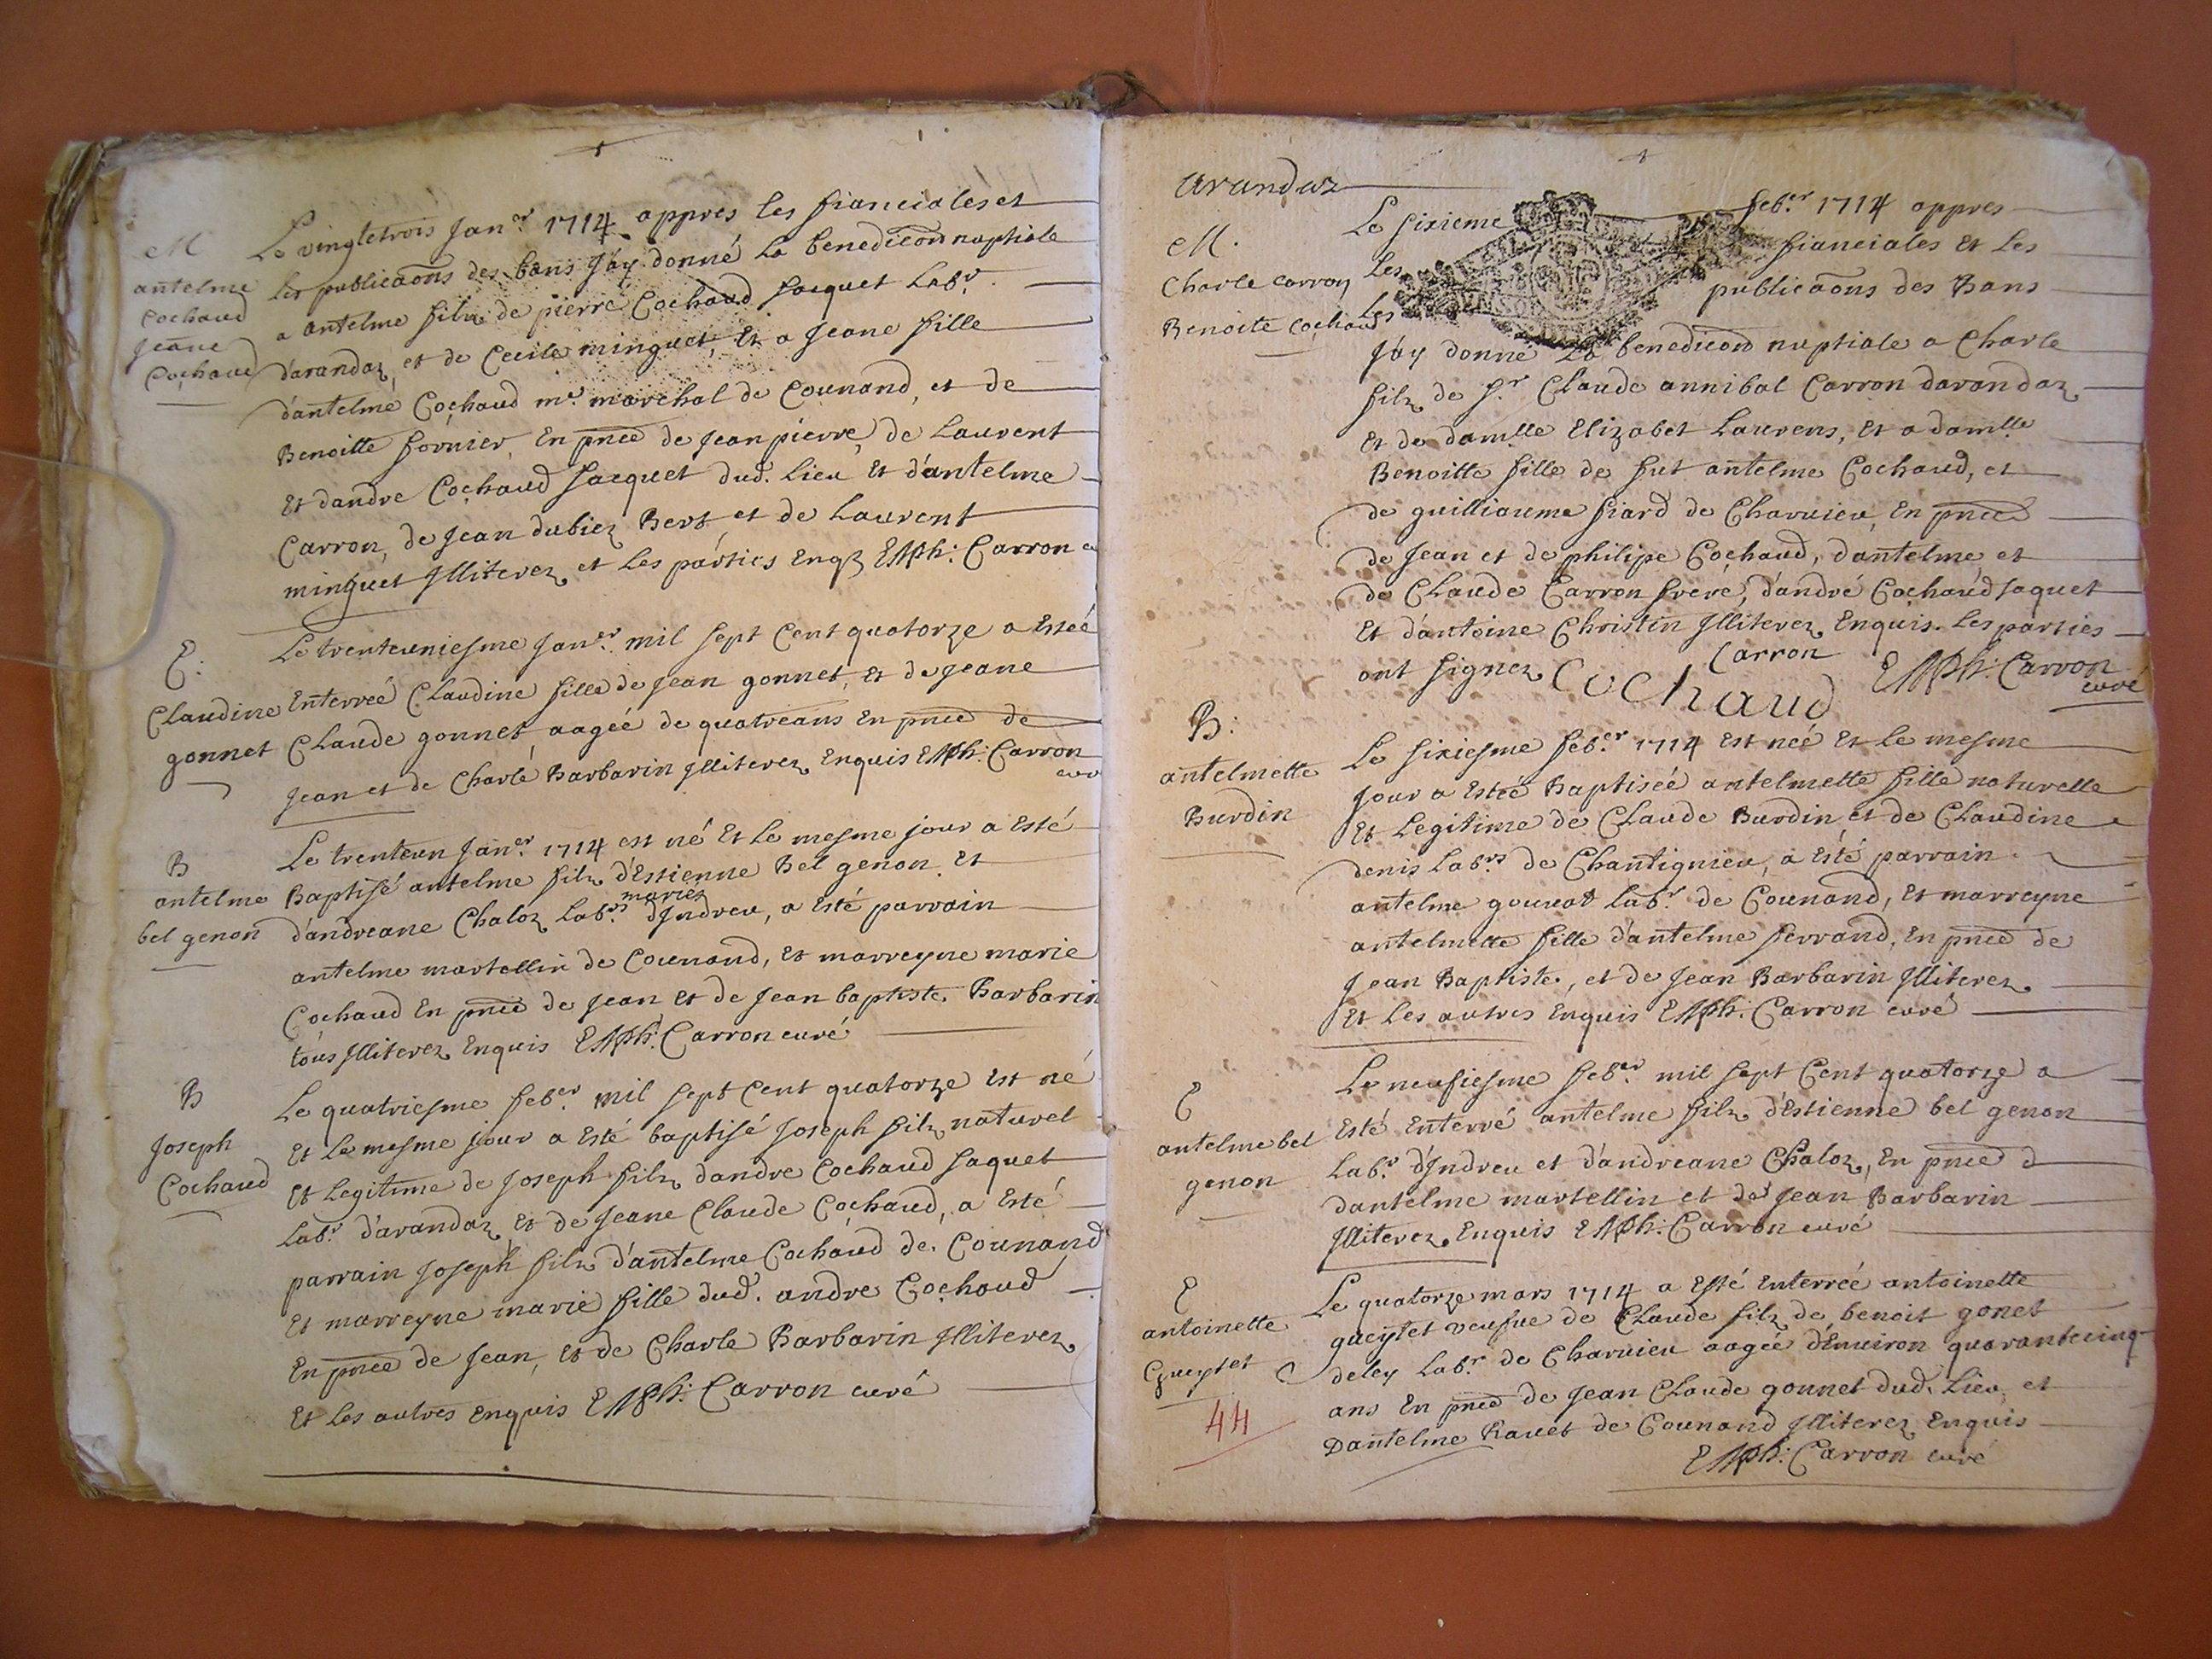 M
antelme
Cochaud
Jeane
Cochaud
Le vingtetrois Janer 1714 appres les fianciales et
les publicaõns des bans J'ay donné la benedicõn nuptiale
a antelme filz de pierre Cochaud Jacquet Labr
d'arandaz et de Cecile minguet, Et a Jeane fille
d'antelme Cochaud me marechal de Counand, et de
Benoitte fornier, En pnce de Jean pierre, de Laurent
Et dandre Cochaud Jacquet dud. Lieu Et d'antelme
Carron, de Jean dubiez Bert et de Laurent
minguet Jlliterez et les parties Enqs EMph: Carron c
E:
Claudine
gonnet
Le trenteuniesme Janer mil sept Cent quatorze a Estéé
Enterréé Claudine fille de Jean gonnet, Et de Jeane
Claude gonnet aagéé de quatreans En pnce de
Jean et de Charle Barbarin Jlliterez Enquis EMph: Carron
curé
B
antelme
bel genon
Le trenteun Janer 1714 est né Et le mesme jour a Esté
Baptisé antelme filz d'Estienne Bel genon Et
d'andreane Chaloz Labrs mariés d'Jndreu, a Esté parrain
antelme martellin de Counand, Et marreyne marie
Cochaud En pnce de Jean Et de Jean baptiste Barbarin
tous Jlliterez Enquis EMph: Carron curé
B
Joseph
Cochaud
Le quatriesme feber mil sept Cent quatorze Est né
Et le mesme jour a Esté baptisé Joseph filz naturel
Et legitime de Joseph filz dandre Cochaud Jaquet
Labr d'arandaz Et de Jeane Claude Cochaud, a Esté
parrain Joseph filz d'antelme Cochaud de Counand
Et marreyne marie fille dud. andre Cochaud
En pnce de Jean, Et de Charle Barbarin Jlliterez
Et les autres enquis EMph: Carron curé
arandaz
M.
Charle Carron
Benoite Cochaud
Le sixieme feber 1714 appres
Les fianciales Et les
Les publicaõns des Bans
J'ay donné La benedicõn nuptiale a Charle
filz de sr Claude annibal Carron darandaz
Et de damlle Elizabet Laurens, Et a damlle
Benoitte fille de fut antelme Cochaud, et
de guilliaume fiard de Charuieu, En pnce
de Jean et de philipe Cochaud, d'antelme, et
de Claude Carron frere, d'andré Cochaud Jaquet
Et d'antoine Christin Jlliterez Enquis. Les parties
ont signez Cochaud Carron EMph: Carron
curé
B:
antelmette
Burdin
Le sixiesme feber 1714 Est néé Et le mesme
Jour a Estéé Baptiséé antelmette fille naturelle
Et Legitime de Claude Burdin et de Claudine
denis Labrs de Chantignieu, a Esté parrain
antelme gouuat Labr de Counand, Et marreyne
antelmette fille d'antelme ferrand, En pnce de
Jean Baptiste, et de Jean Barbarin Jlliterez
Et les autres Enquis EMph: Carron curé
E
antelme bel
genon
Le neufiesme feber mil sept Cent quatorze a
Esté Enterré antelme filz d'Estienne bel genon
Labr d'Jndreu et d'andreane Chaloz, En pnce
dantelme martellin et de Jean Barbarin
Jlliterez Enquis EMph: Carron curé
E
antoinette
Gueytet
44
Le quatorze mars 1714 a Esté Enterréé antoinette
gueytet veufue de Claude filz de benoit gonet
deley Labr de Charuieu aagéé d'Enuiron quarantecinq
ans En pnce de Jean Claude gonnet dud. Lieu, et
Dantelme Rauet de Counand Jlliterez Enquis
EMph: Carron curé